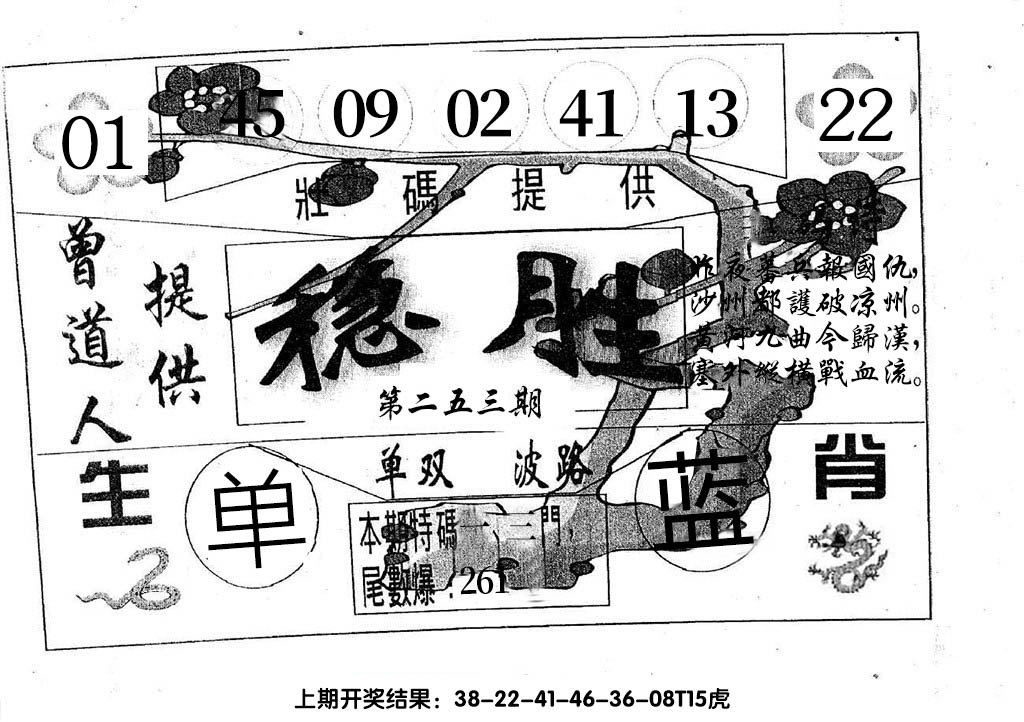 01 45 09 02 41 13 22
壯碼提供
曾道人
提供
稳胜
第二五三期
昨夜蕃兵報國仇，
沙州都護破凉州。
黃河九曲今歸漢，
塞外縱橫戰血流。
单双 波路
生肖
单
蓝
本期特碼一、三門，
尾數爆：261
上期开奖结果：38-22-41-46-36-08T15虎